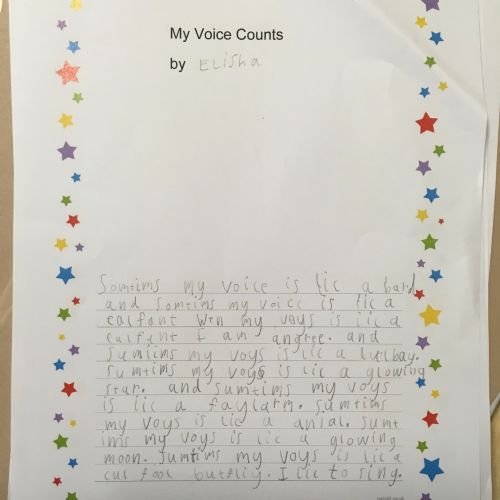 My Voice Counts
by Elisha
Somtims my voice is lic a bard
and somtims my voice is lic a
ealfant wen my voys is lic a
ealfant I am angree. and
sumtims my voys is lic a lullbay.
sumtims my voys is lic a glowing
star. and sumtims my voys
is lic a faylarm. sumtims
my voys is lic a anial. sumt
ims my voys is lic a glowing
moon. sumtims my voys is lic a
cul fool butfliy. I lic to sing.